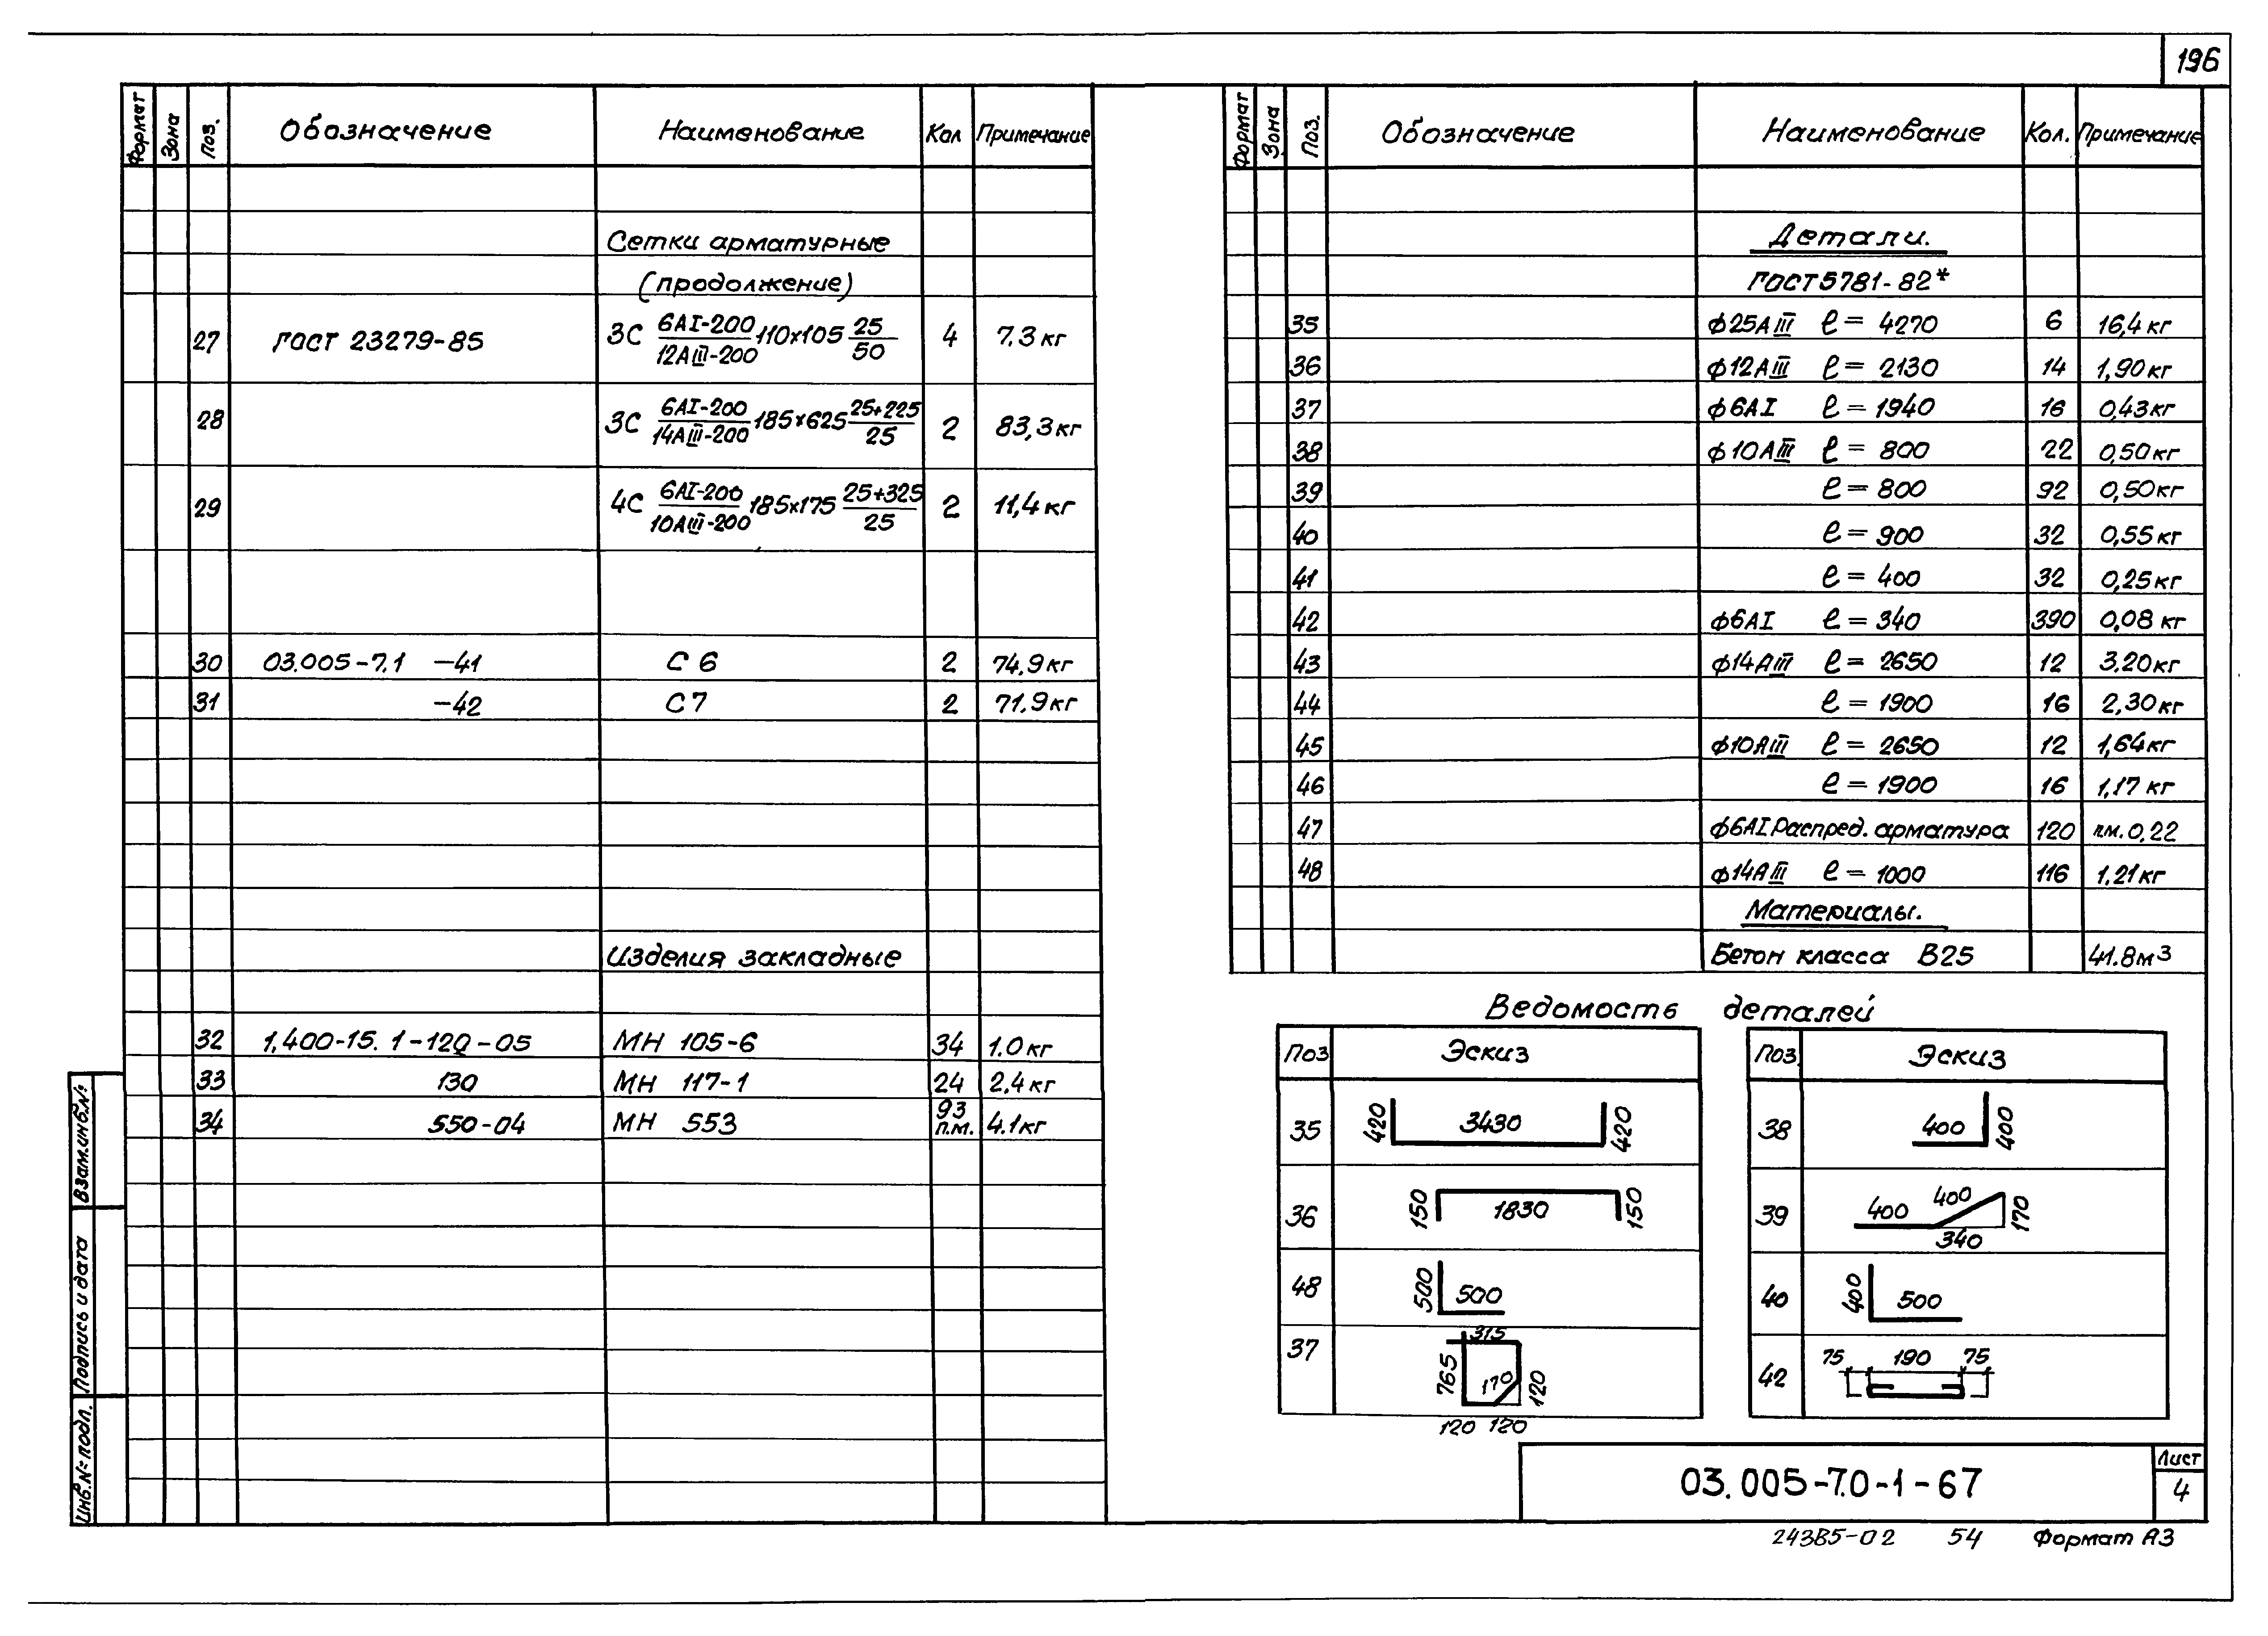 196
Формат Зона Поз. Обозначение Наименование Кол Примечание
Сетки арматурные
(продолжение)
27 ГОСТ 23279-85 3С 6АI-200/12АIII-200 110х105 25/50 4 7.3 кг
28 3С 6АI-200/14АIII-200 185х625 25+225/25 2 83,3 кг
29 4С 6АI-200/10АIII-200 185х175 25+325/25 2 11,4 кг
30 03.005-7.1 -41 С 6 2 74,9 кг
31 -42 С 7 2 71.9 кг
Изделия закладные
32 1.400-15. 1-120-05 МН 105-6 34 1.0 кг
33 130 МН 117-1 24 2,4 кг
34 550-04 МН 553 93 п.м. 4.1 кг
Формат Зона Поз. Обозначение Наименование Кол. Примечание
Детали.
ГОСТ 5781-82*
35 ф25АIII ℓ= 4270 6 16,4 кг
36 ф12АIII ℓ= 2130 14 1,90 кг
37 ф6АI ℓ= 1940 16 0,43 кг
38 ф10АIII ℓ= 800 22 0,50 кг
39 ℓ= 800 92 0,50 кг
40 ℓ= 900 32 0,55 кг
41 ℓ= 400 32 0,25 кг
42 ф6АI ℓ= 340 390 0,08 кг
43 ф14АIII ℓ= 2650 12 3,20 кг
44 ℓ= 1900 16 2,30 кг
45 ф10АIII ℓ= 2650 12 1,64 кг
46 ℓ= 1900 16 1,17 кг
47 ф6АI Распред. арматура 120 п.м. 0,22
48 ф14АIII ℓ= 1000 116 1.21 кг
Материалы.
Бетон класса В25 41.8 м3
Ведомость деталей
Поз Эскиз
35 420 3430 420
36 150 1830 150
48 500 500
37 315 765 170 120 120 120
Поз. Эскиз
38 400 400
39 400 400 170 340
40 400 500
42 75 190 75
Взам.инв.№
Подпись и дата
Инв.№ подл.
03.005-7.0-1-67
Лист
4
24385-02 54 Формат А3